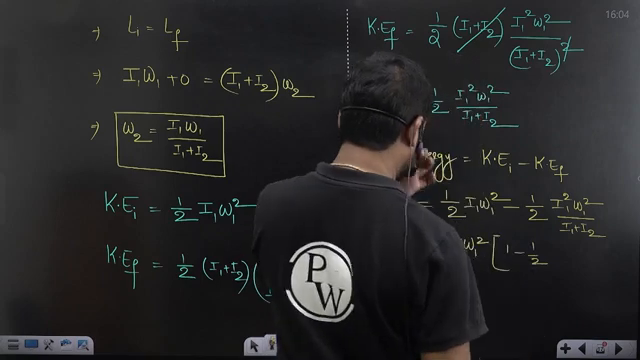 ⇒ L₁ = L_f
⇒ I₁W₁ + 0 = (I₁+I₂)ω₂
⇒ ω₂ = I₁W₁ / (I₁+I₂)
K·Eᵢ = 1/2 I₁ω₁²
K·E_f = 1/2 (I₁+I₂) (
K·E_f = 1/2 (I₁+I₂) I₁²ω₁² / (I₁+I₂)²
1/2 I₁²ω₁² / (I₁+I₂)
= K·Eᵢ − K·E_f
= 1/2 I₁ω₁² − 1/2 I₁²ω₁² / (I₁+I₂)
ω₁² [ 1 − 1/2
PW
16:04